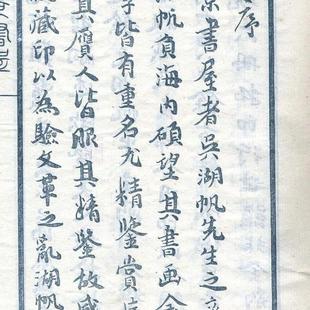 序
景書屋者吳湖帆先生之
湖帆負海內碩望其書画金
皆有重名尤精鑒賞
真贗人皆服其精鑒故咸
藏印以為驗文革之亂湖帆